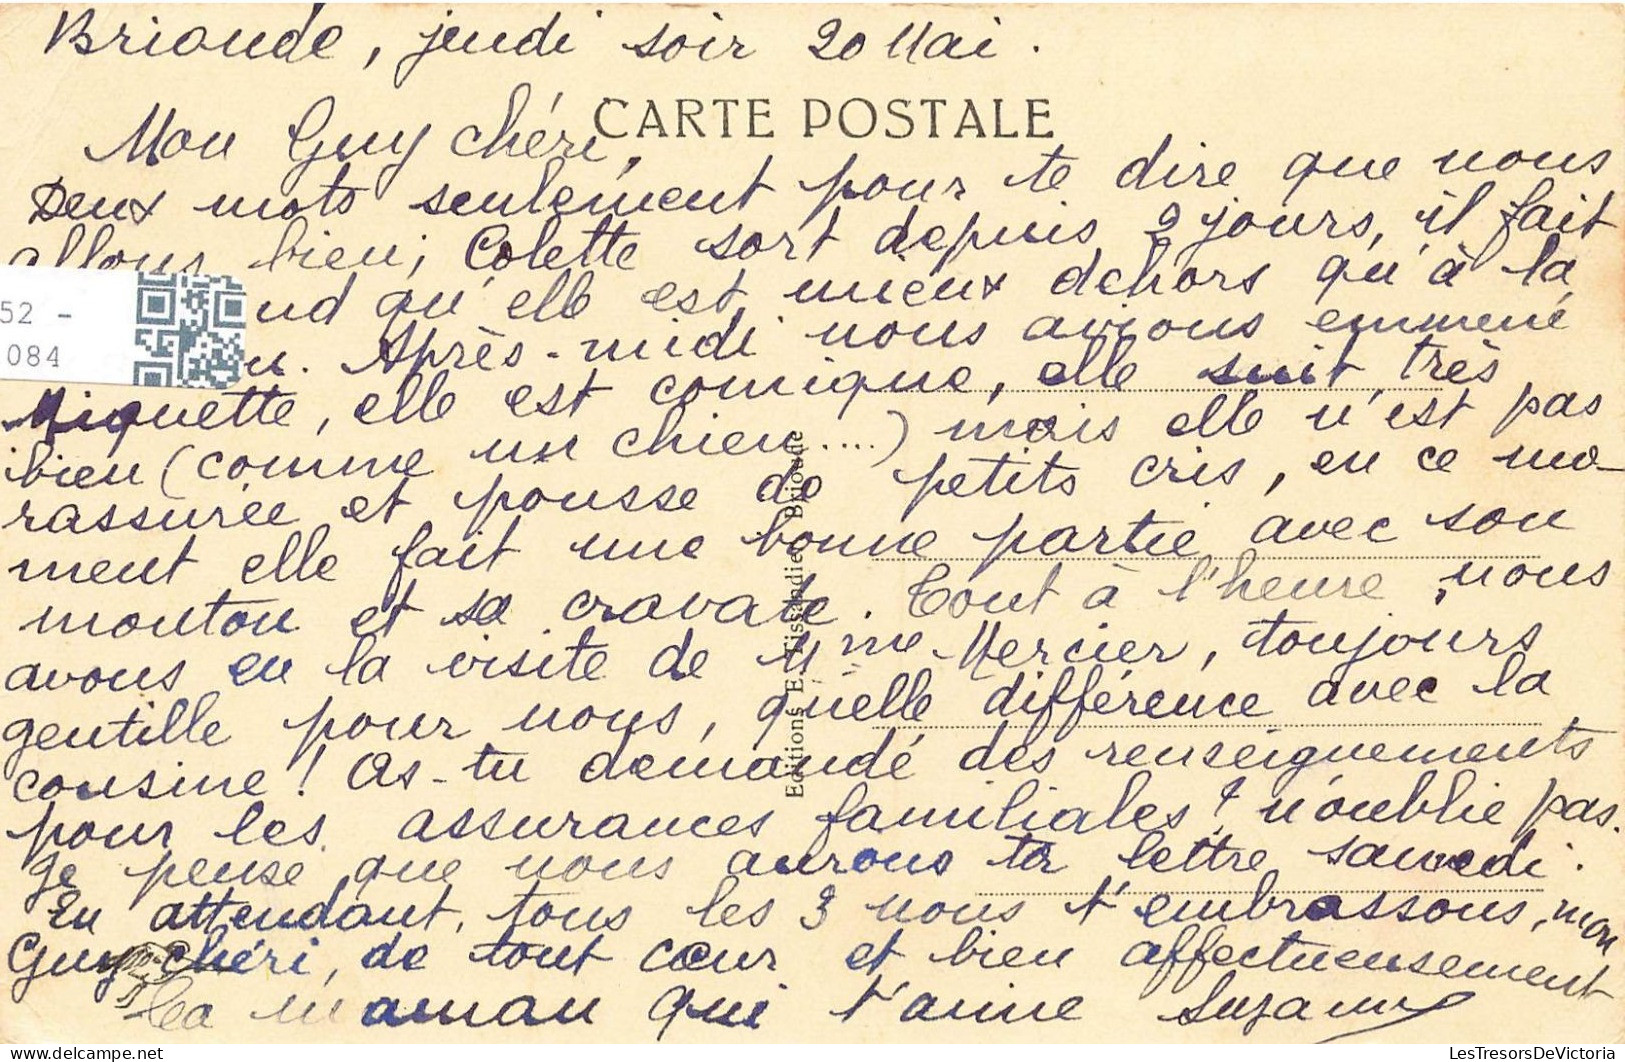 Brioude, jeudi soir 20 Mai.
CARTE POSTALE
Mon Guy chéri,
Deux mots seulement pour te dire que nous
allons bien, Colette sort depuis 2 jours, il fait
qu'elle est mieux dehors qu'à la
Après-midi nous avions emmené
Miquette, elle est comique, elle suit très
bien (comme un chien....) mais elle n'est pas
rassurée et pousse de petits cris, en ce mo-
ment elle fait une bonne partie avec son
mouton et sa cravate. Tout à l'heure, nous
avons eu la visite de Mme Mercier, toujours
gentille pour nous, quelle différence avec la
cousine! As-tu demandé des renseignements
pour les assurances familiales? n'oublie pas.
Je pense que nous aurons ta lettre samedi.
En attendant, tous les 3 nous t'embrassons, mon
Guy chéri, de tout cœur et bien affectueusement
Ta maman qui t'aime Suzanne
Editions E. Brioude
52 -
084
LesTresorsDeVictoria